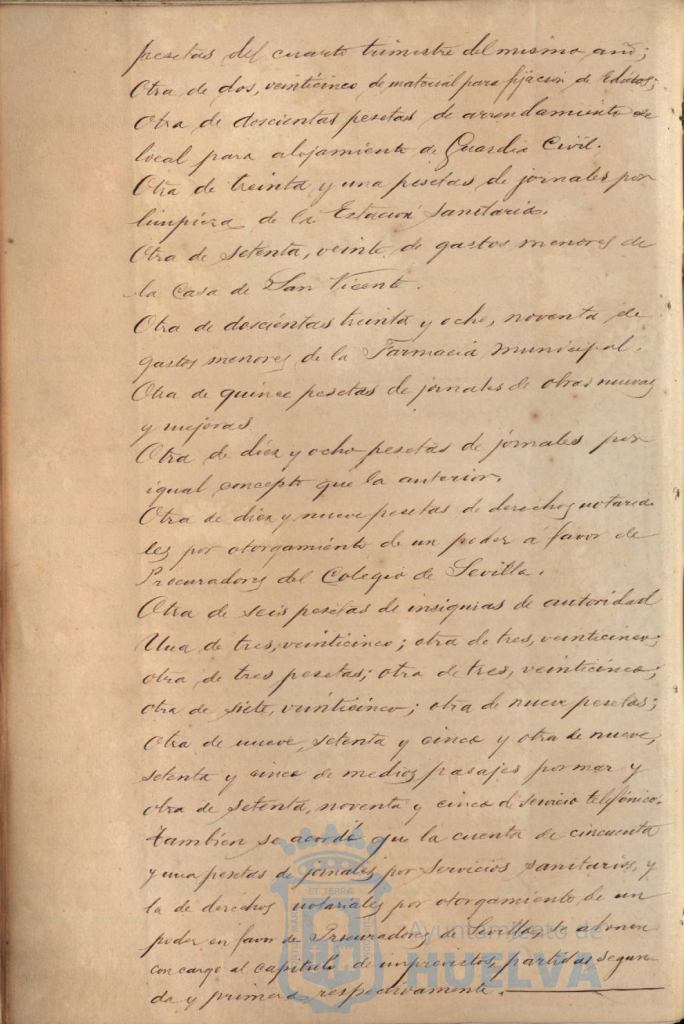 pesetas del cuarto trimestre del mismo año;
Otra de dos, veinticinco de material para fijacion de Edictos;
Otra de doscientas pesetas de arrendamiento de
local para alojamiento de Guardia Civil.
Otra de treinta y una pesetas de jornales por
limpieza de la Estacion Sanitaria.
Otra de setenta, veinte, de gastos menores de
la Casa de San Vicente.
Otra de doscientas treinta y ocho, noventa de
gastos menores de la Farmacia Municipal.
Otra de quince pesetas de jornales de obras nuevas
y mejoras.
Otra de diez y ocho pesetas de jornales por
igual concepto que la anterior.
Otra de diez y nueve pesetas de derechos notaria
les por otorgamiento de un poder a favor de
Procuradores del Colegio de Sevilla.
Otra de seis pesetas de insignias de autoridad
Una de tres, veinticinco; otra de tres, veinticinco;
otra de tres pesetas; otra de tres, veinticinco;
otra de siete, veinticinco; otra de nueve pesetas;
otra de nueve, setenta y cinco y otra de nueve,
setenta y cinco de medios pasajes por mar y
otra de setenta, noventa y cinco de servicio telefónico.
Tambien se acordó que la cuenta de cincuenta
y una pesetas de jornales por servicios sanitarios, y
la de derechos notariales por otorgamiento de un
poder en favor de Procuradores de Sevilla, se abonen
con cargo al capitulo de imprevistos, partidas segun
da y primera, respectivamente.
Ayuntamiento de
HUELVA